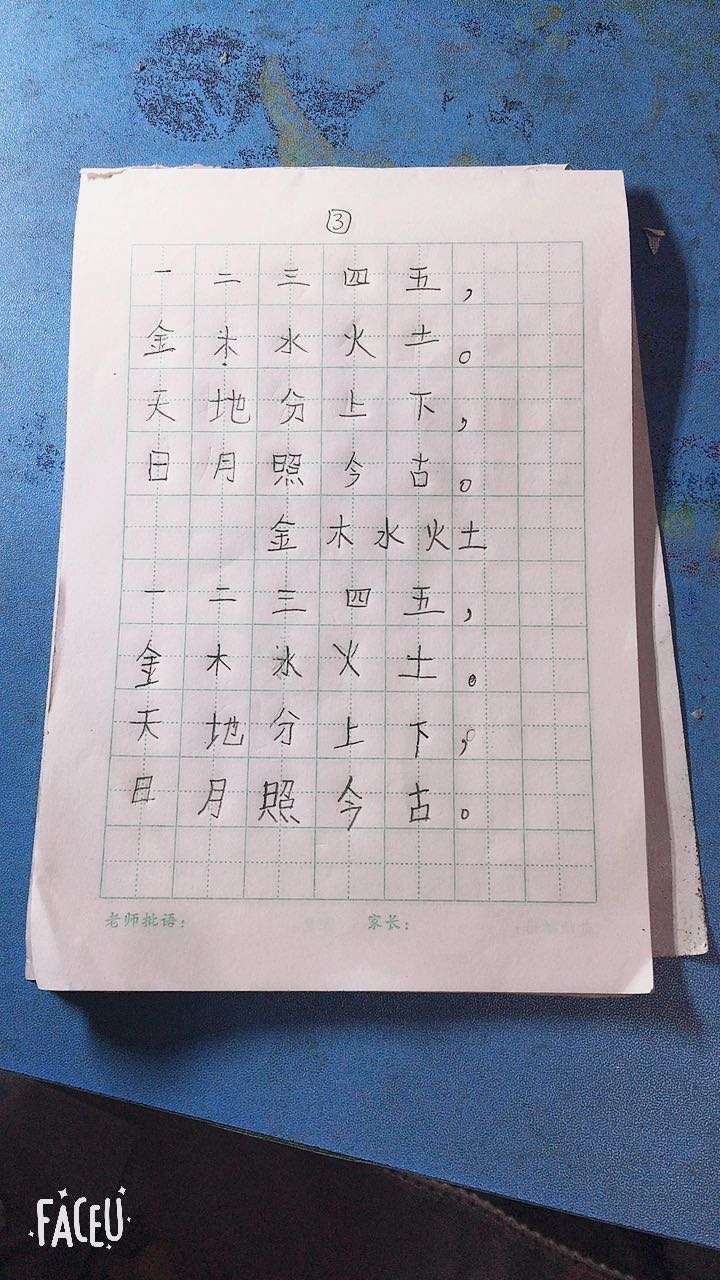 ③
一二三四五，
金木水火土。
天地分上下，
日月照今古。
金木水火土
一二三四五，
金木水火土。
天地分上下，
日月照今古。
老师批语： 家长：
FACEU